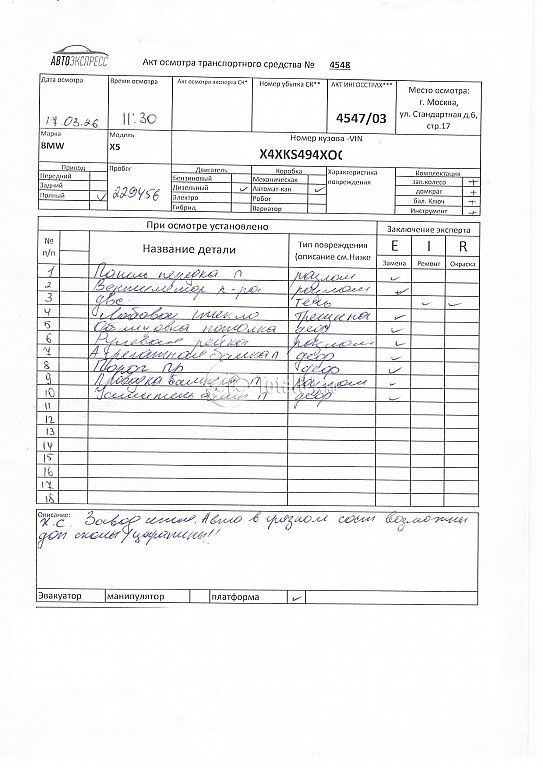 АВТОЭКСПРЕСС
Акт осмотра транспортного средства № 4548
Дата осмотра Время осмотра Акт осмотра эксперта СК* Номер убытка СК** АКТ ИНГОССТРАХ*** Место осмотра:
г. Москва,
ул. Стандартная д.6,
стр.17
17.03.26 11:30 4547/03
Марка Модель Номер кузова -VIN
BMW X5 X4XKS494XO
Привод Пробег Двигатель Коробка Характеристика повреждения Комплектация
Передний Бензиновый Механическая зап.колесо +
Задний Дизельный ✓ Автомат-кая ✓ домкрат +
Полный ✓ 229456 Электро Робот бал. Ключ +
Гибрид Вариатор Инструмент +
При осмотре установлено Заключение эксперта
№ п/п Название детали Тип повреждения (описание см.Ниже E I R
Замена Ремонт Окраска
1 Панель передка п разлом ✓
2 разлом ✓
3 двс течь ✓ ✓
4 Лобовое стекло трещина ✓
5 Облицовка потолка деф ✓
6 Рулевая рейка разлом ✓
7 деф ✓
8 Порог пр деф ✓
9 п разлом ✓
10 Усилитель п деф ✓
11
12
13
14
15
16
17
18
Описание:
Х.С. Завод Авто в грязном сост возможны
доп сколы, царапины!!
Эвакуатор манипулятор платформа ✓